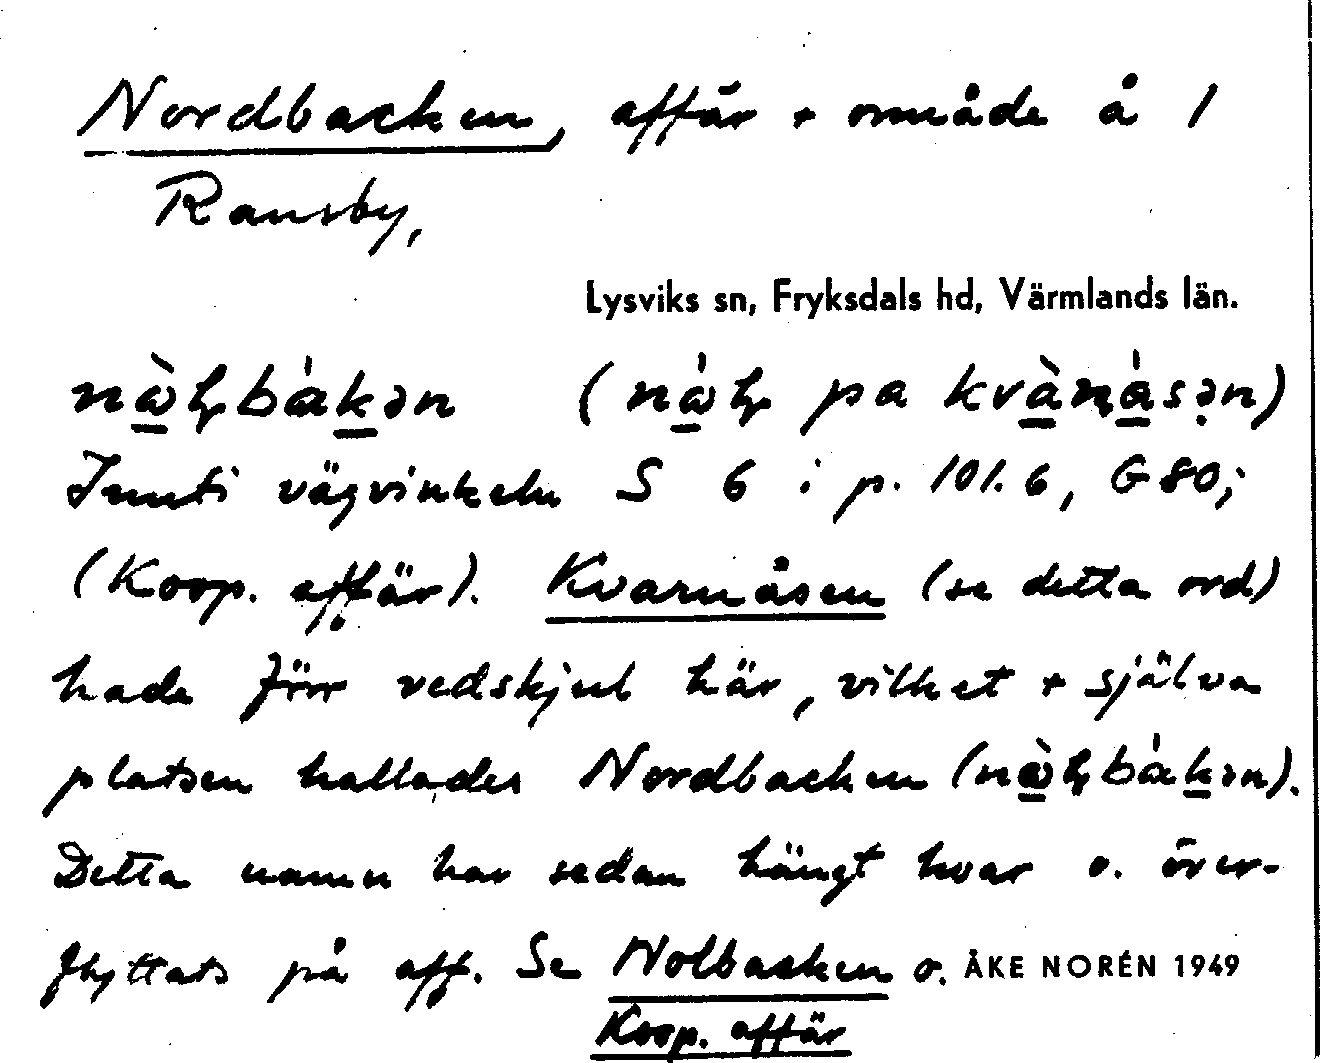 Nordbacken, affär + område å 1
Ransby,
Lysviks sn, Fryksdals hd, Värmlands län.
(                pa                )
Inuti vägvinkeln S 6 i p. 101.6, G80;
(Koop. affär). Kvarnåsen (se detta ord)
hade förr vedskjul här, vilket + själva
platsen kallades Nordbacken
Detta namn har sedan hängt kvar o. över-
flyttats på aff. Se Nolbacken o. ÅKE NORÉN 1949
Koop. affär